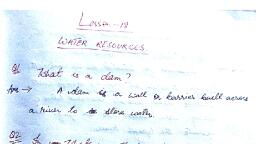 Lesson - 18
WATER RESOURCES.
Q1 What is a dam?
Ans → A dam is a wall or barrier built across
a river to store water.
Q2